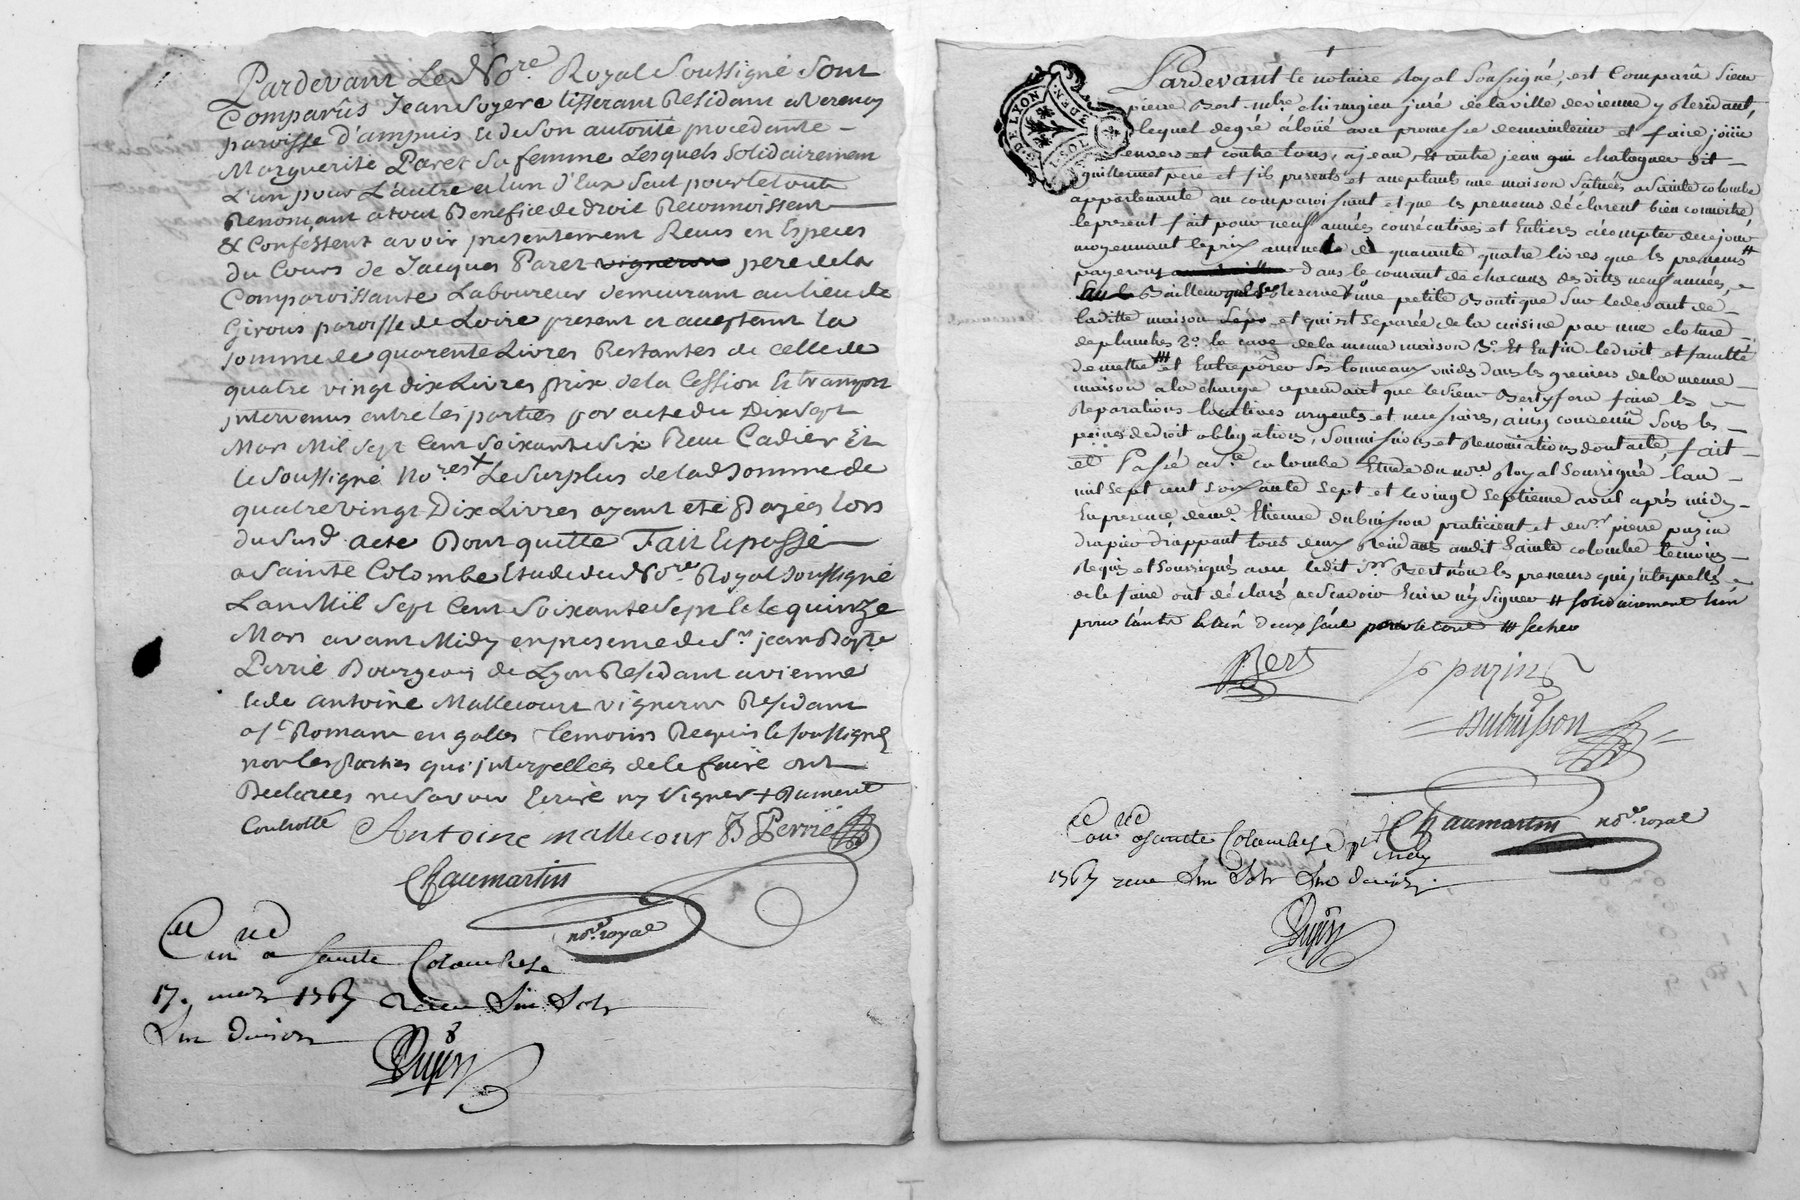 Pardevant Le No.re Royal Soussigné Sont
Comparûs Jean Soyere tisserant Residant a Verenay
paroisse d'ampuis et de Son autorité procedante
Marguerite Paret Sa femme Lesquels Solidairement
L'un pour L'autre et lun d'Eux Seul pour le tout
Renoncant a tout Benefice de droit Reconnoissent
& Conféssent avoir presentement Reçus en Especes
du Cours de Jacques Paret vigneron pere de la
Comparoissante Laboureur demeurant au lieu de
paroisse de Loire present et acceptant la
somme de quarente Livres Restantes de celle de
quatre vingt dix Livres prix de la Cession et transport
intervenus entre les parties par acte du Dix Sept
Mars Mil Sept Cent Soixante Six Reçu Cadier Et
le soussigné No.res + Le Surplus de lad Somme de
quatre vingt Dix Livres ayant eté Payés lors
du Susd acte Dont quitte Fait et passé
a Sainte Colombe Etude du No.re Royal Soussigné
L'an Mil Sept Cent Soixante Sept et le quinze
Mars avant Midy en presence de S.r jean Bapt.e
Perrié Bourgeois de Lyon Residant a vienne
et de antoine Mallecourt vigneron Residant
a S.t Romain en galles temoins Requis et soussignés
non les Parties qui interpellées de le faire ont
Declarées ne Savoir Ecrire ny Signer + Dument
Controllé Antoine mallecour JB Perrié
Chaumartin
no.re royal
a Sainte Colombe Le
17. mars 1767 Recu
Dujon
Pardevant le notaire Royal Soussigné, est Comparû Sieur
pierre Bert m.re chirurgien juré de la ville de vienne y Residant,
lequel de gré à loüé avec promesse de maintenir et faire joüir
envers et contre tous, a jean, Et autre jean qui chatagner dit
guillermet pere et fils presents et acceptants une maison Situéé a Sainte colombe
appartenante au comparoissant et que les preneurs déclarent bien connoitre,
le present fait pour neuf années consécutives et Entieres a compter de ce jour
moyennant le prix annuel de quarante quatre livres que les preneurs #
payeront dans le courant de chacune des dittes neuf années,
Bailleur Se Reserve 1.° une petite Boutique Sur le devant de
laditte maison et qui est Separée de la cuisine par une cloture
de planches 2.° la cave de la meme maison 3.° Et Enfin le droit et faculté
de mettre ### et Entreposer Ses tonneaux vuides dans les greniers de la meme
maison a la charge cependant que le Sieur Bert y fera faire les
Reparations locatives urgentes et necessaires, ainsy convenû Sous les
peines de droit obligations, Soumissions et Renonciations dont acte, fait
et Passé a S.te colombe Etude du no.re Royal Soussigné L'an
mil Sept cent Soixante Sept et le vingt Septieme avril après midy
En presence de m.e Etienne dubuisson praticient et de S.r pierre pazin
drapier drappant tous deux Residants audit Sainte colombe temoins
Requis et Soussignés avec ledit S.r Bert non les preneurs qui interpellés
de le faire ont déclaré ne Scavoir Ecrire n'y Signer # Solidairement l'un
pour l'autre et l'un d'eux Seul pour le tout ### Secher
Bert
p pazin
Dubuisson
Chaumartin no.re royal
a Sainte Colombe
1767
Dujon
G. DE LYON